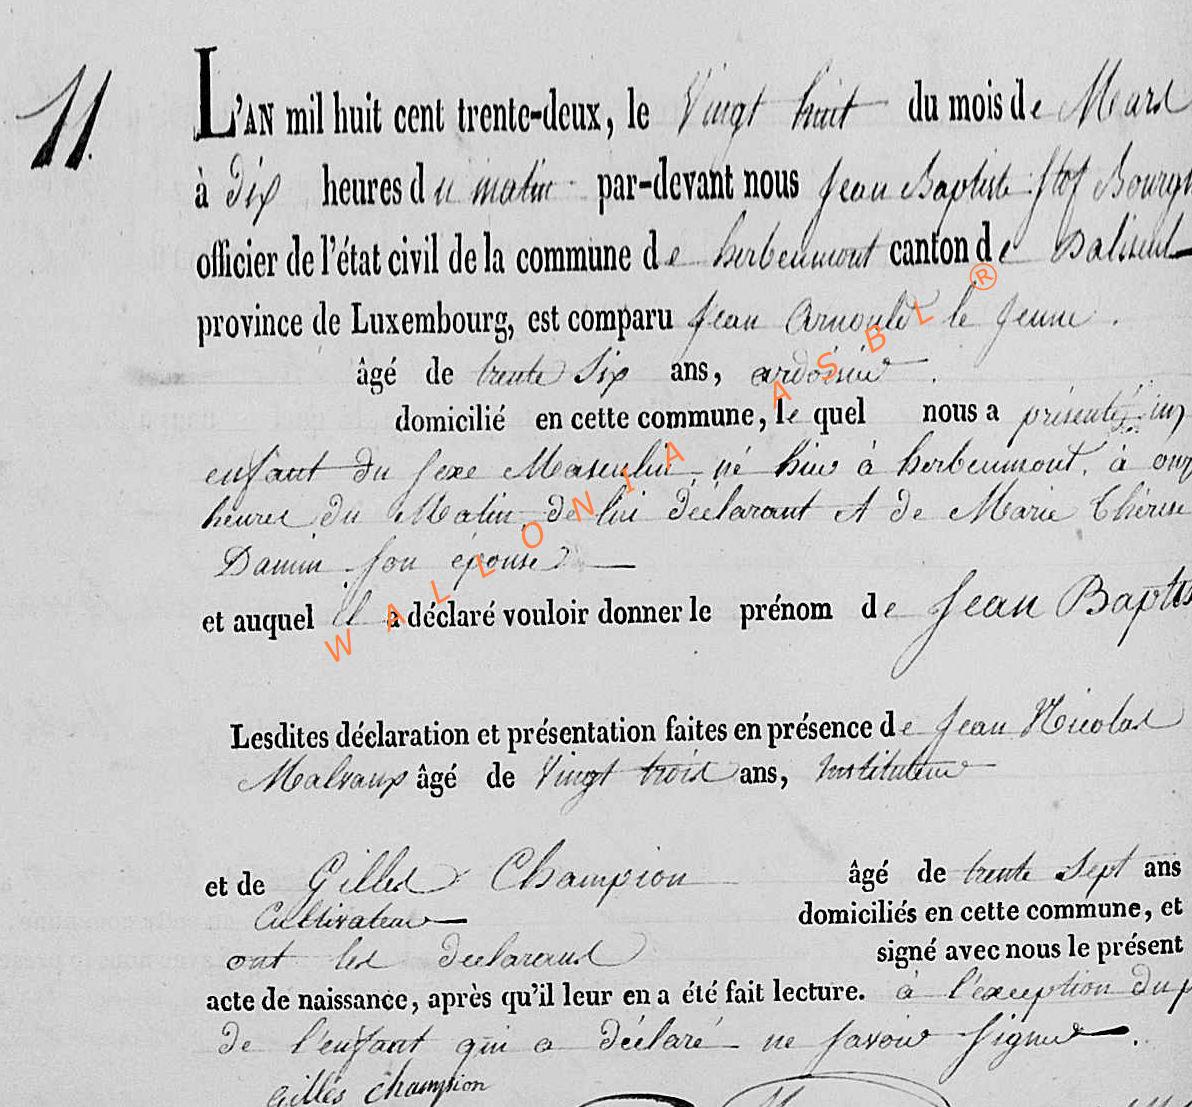 11.
L'AN mil huit cent trente-deux, le Vingt huit du mois de Mars
à Dix heures du matin par-devant nous Jean Baptiste
officier de l'état civil de la commune de herbeumont canton de
province de Luxembourg, est comparu Jean Arnould le Jeune.
âgé de trente Six ans, ardoisier.
domicilié en cette commune, le quel nous a présenté un
enfant du sexe Masculin né hier à herbeumont, à onz
heures du Matin de lui déclarant et de Marie Thérèse
son épouse
et auquel il a déclaré vouloir donner le prénom de Jean Baptis
Lesdites déclaration et présentation faites en présence de Jean Nicolas
Malvaux âgé de Vingt trois ans, Instituteur
et de Gilles Champion âgé de trente Sept ans
Cultivateur domiciliés en cette commune, et
ont les déclarans signé avec nous le présent
acte de naissance, après qu'il leur en a été fait lecture. à l'exception du p
de l'enfant qui a déclaré ne savoir signer.
Gilles champion
WALLONIA ASBL ®